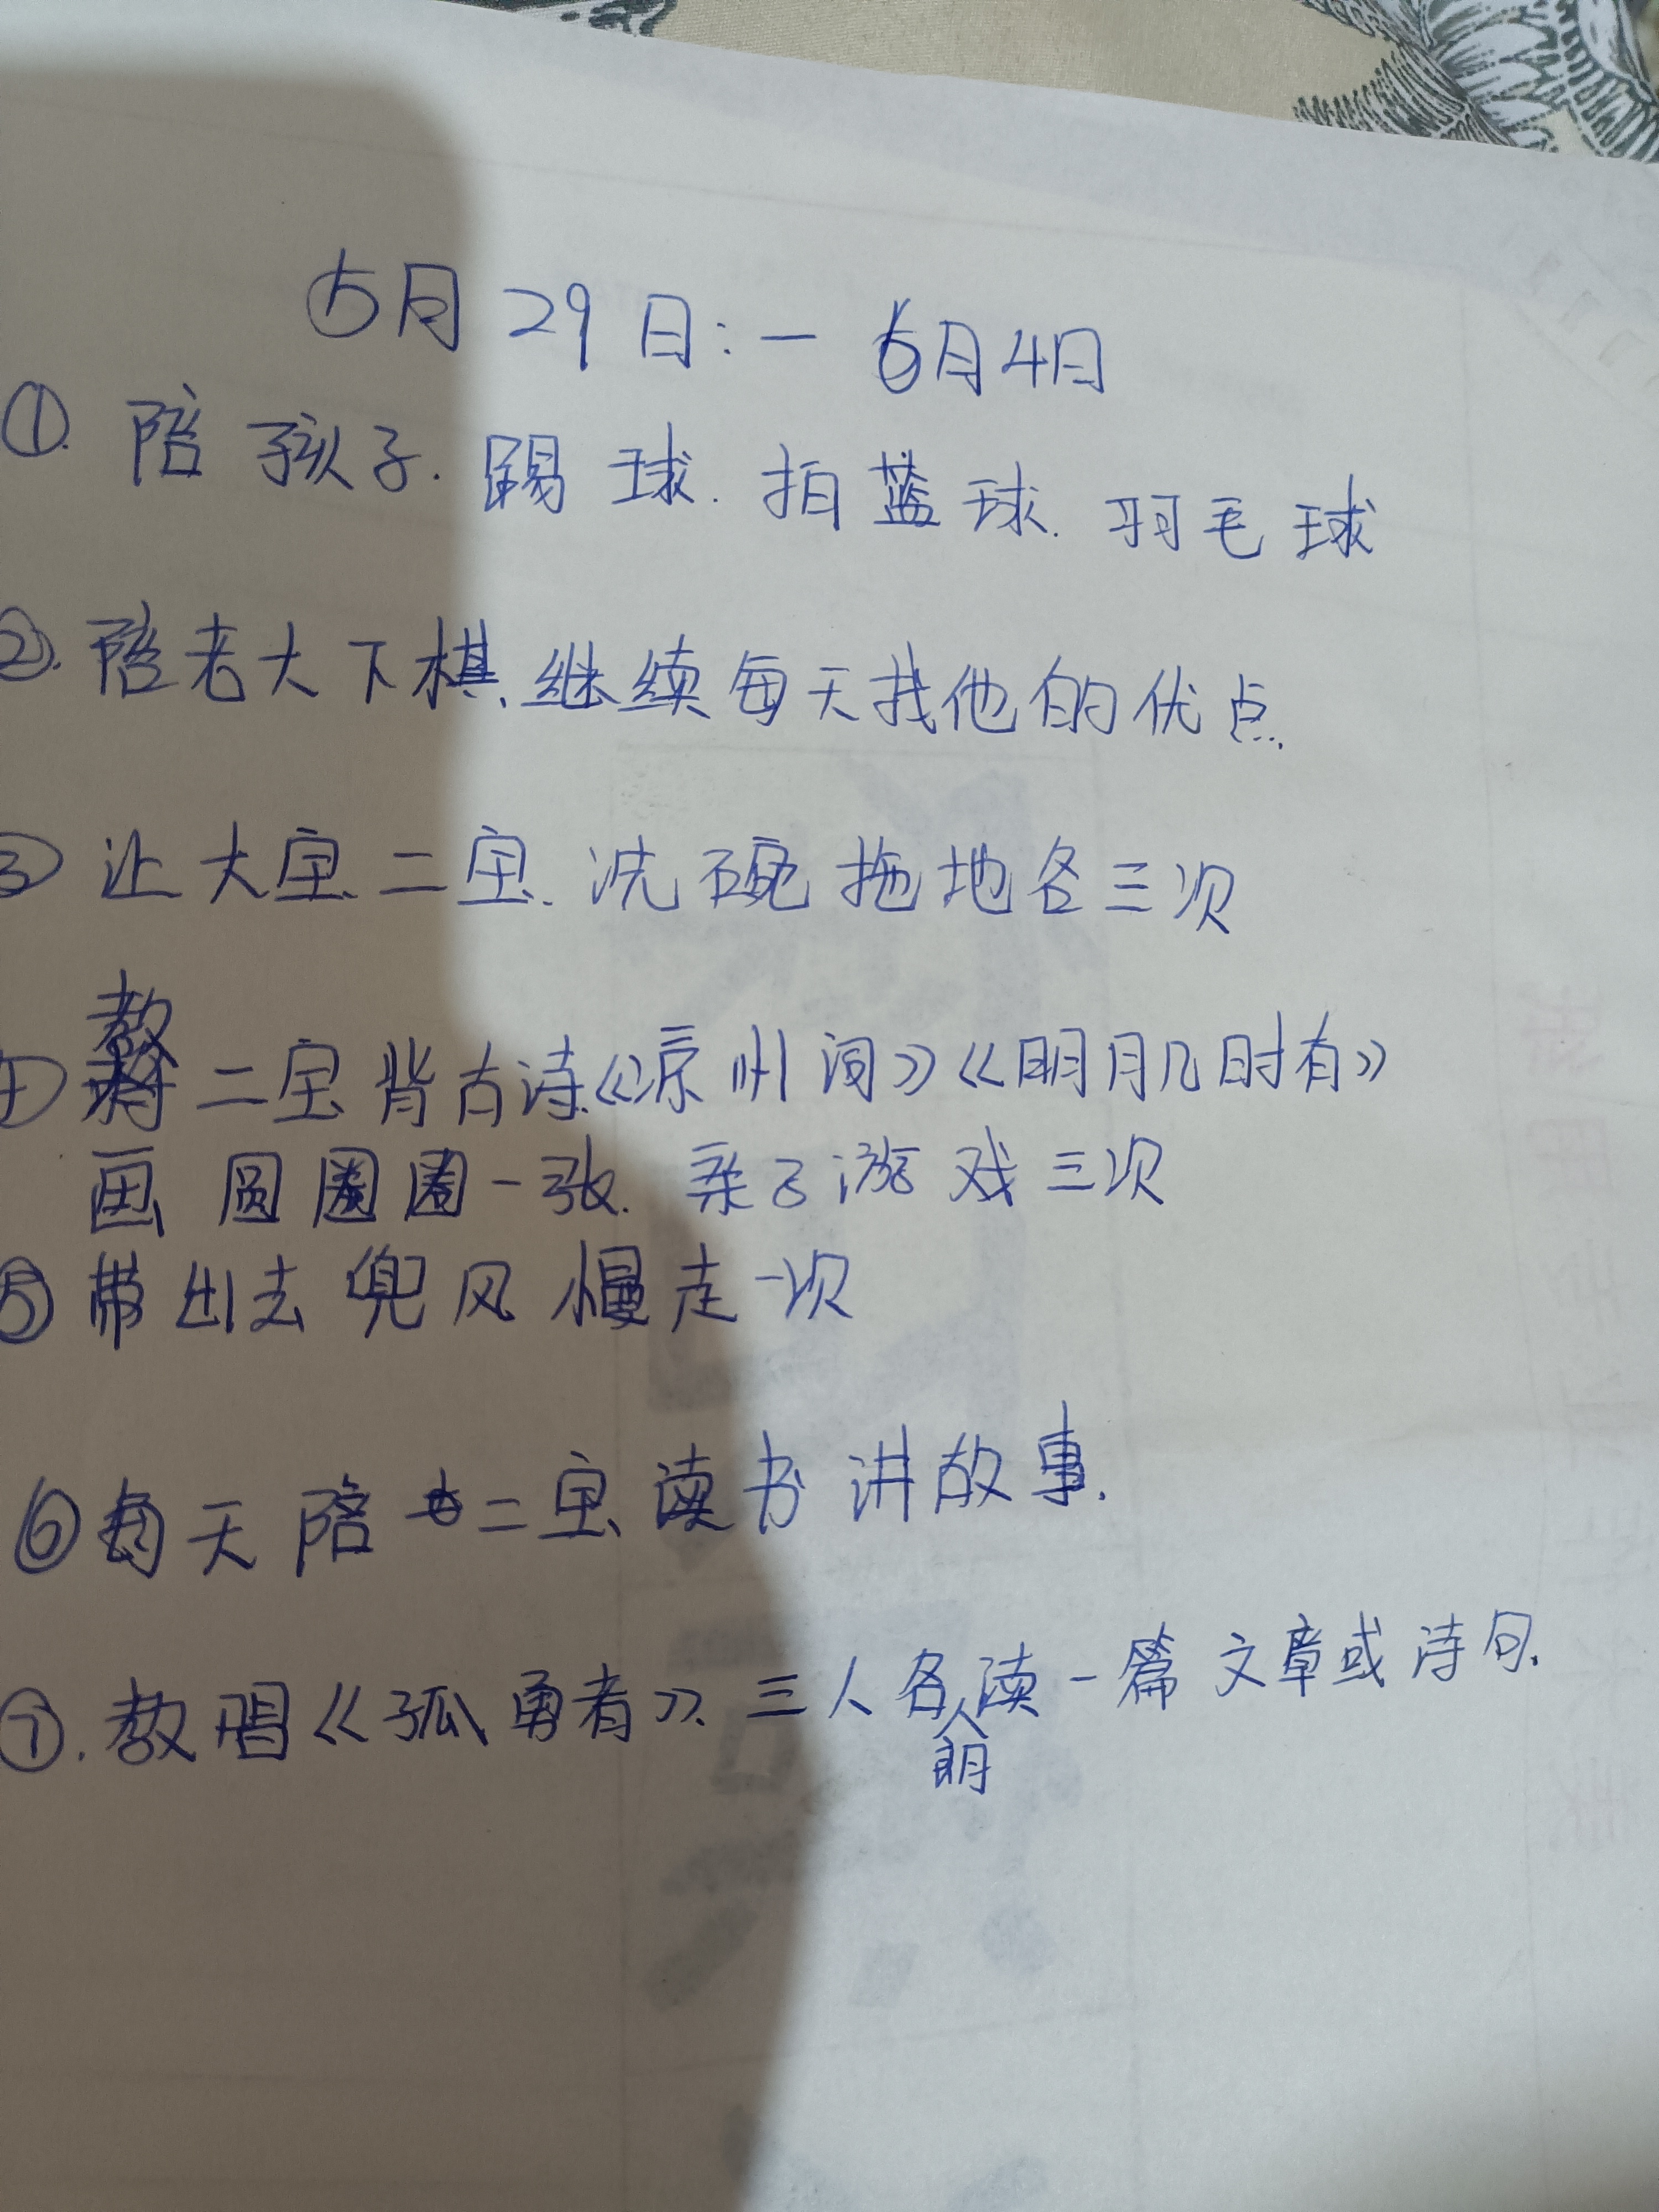 5月29日:一6月4日
①.陪孩子.踢球.拍蓝球.羽毛球
②.陪老大下棋.继续每天找他的优点.
③让大宝.二宝.洗碗拖地各三次
教
二宝背古诗.《凉州词》《明月几时有》
画圆圈圈一张.亲子游戏三次
⑤带出去兜风慢走一次
⑥每天陪二宝读书讲故事.
⑦.教唱《孤勇者》.三人各读一篇文章或诗句.
朗